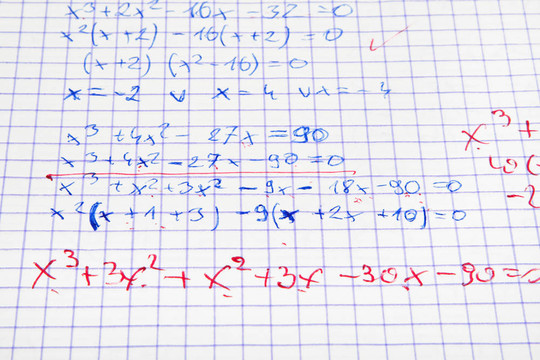 x³ + 2x² - 16x - 32 = 0
x²(x + 2) - 16(x + 2) = 0
(x + 2) (x² - 16) = 0
x = -2 v x = 4 v x = -4
x³ + 4x² - 27x = 90
x³ + 4x² - 27x - 90 = 0
x³ + x² + 3x² - 9x - 18x - 90 = 0
x²(x + 1 + 3) - 9(x + 2x + 10) = 0
x³ + 3x² + x² + 3x - 30x - 90 = 0
x³ +
10(
-2